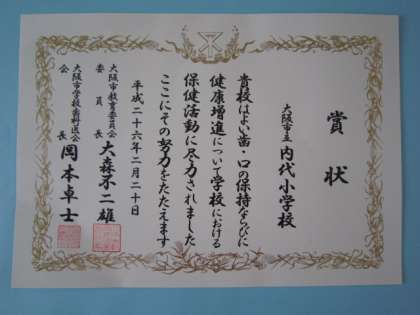 賞状
大阪市立 内代小学校
貴校はよい歯・口の保持ならびに
健康増進について学校における
保健活動に尽力されました
ここにその努力をたたえます
平成二十六年二月二十日
大阪市教育委員会
委員長 大森不二雄
大阪市学校歯科医会
会長 岡本卓士